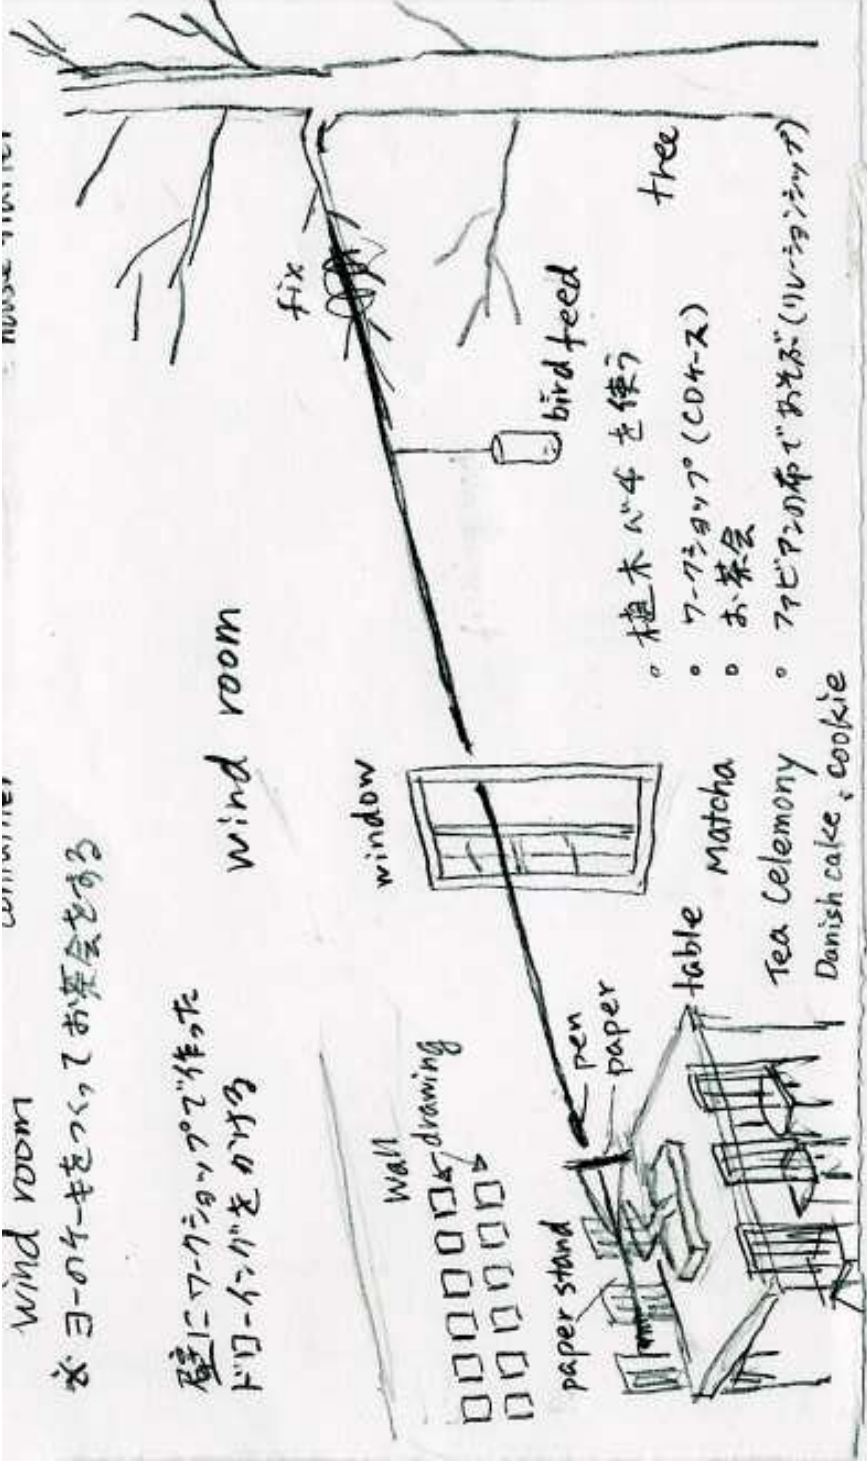 Wind room
※ヨーのケーキをつくってお茶会をする
壁にワークショップで作った
ドローイングをかける
wind room
fix
window
wall
drawing
bird feed
paper stand
pen
paper
tree
table
Matcha
Tea Celemony
Danish cake, cookie
○ 植木バチを使う
○ ワークショップ(CDケース)
○ お茶会
○ ファビアンの布であそぶ(リレーションシップ)